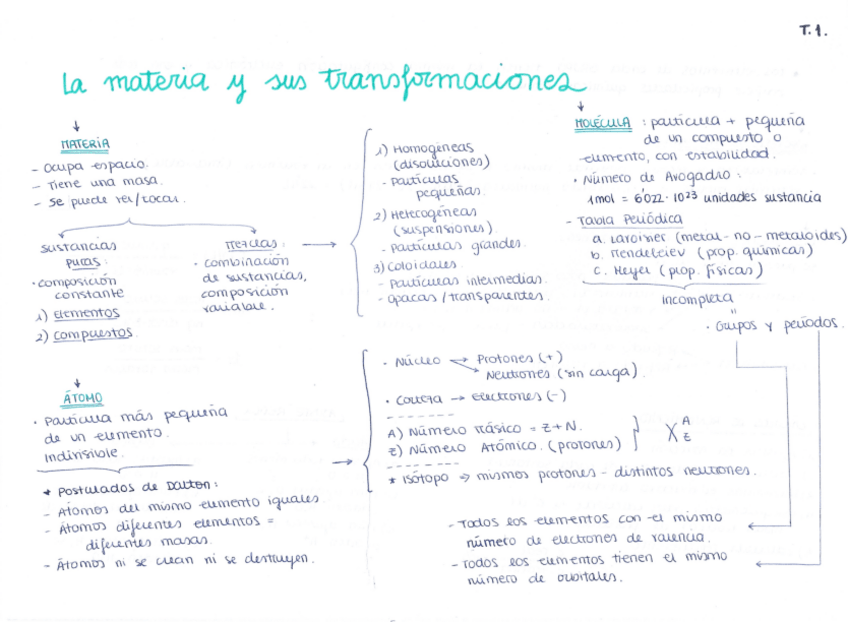 T.1.
La materia y sus transformaciones
MATERIA
- Ocupa espacio.
- Tiene una masa.
- Se puede ver/tocar.
sustancias
puras:
· composición
constante
1) Elementos
2) Compuestos.
Mezclas:
· combinación
de sustancias,
composición
variable.
1) Homogéneas
(disoluciones)
- Partículas
pequeñas.
2) Heterogéneas
(suspensiones).
- Partículas grandes.
3) Coloidales.
- Partículas intermedias.
- opacas/transparentes.
MOLÉCULA : partícula + pequeña
de un compuesto o
elemento, con estabilidad.
· Número de Avogadro:
1mol = 6'022 · 10²³ unidades sustancia
- Tabla Periódica
a. Lavoisier (metal-no-metaloides)
b. Mendeleiev (prop. químicas)
c. Meyer (prop. físicas)
incompleta
"
· Grupos y períodos.
ÁTOMO
· Partícula más pequeña
de un elemento.
Indivisible.
* Postulados de Dalton:
- Átomos del mismo elemento iguales.
- Átomos diferentes elementos =
diferentes masas.
- Átomos ni se crean ni se destruyen.
· Núcleo → Protones (+)
Neutrones (sin carga).
· Corteza → electrones (-)
A) Número Másico = Z + N.
Z) Número Atómico. (protones)
X A
Z
* Isótopo → mismos protones - distintos neutrones.
- Todos los elementos con el mismo
número de electrones de valencia.
- Todos los elementos tienen el mismo
número de orbitales.